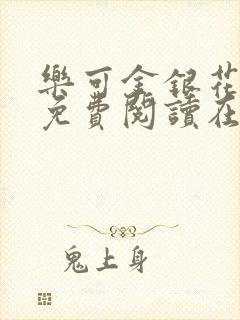 樂可金銀花
免費閱讀在
鬼上身